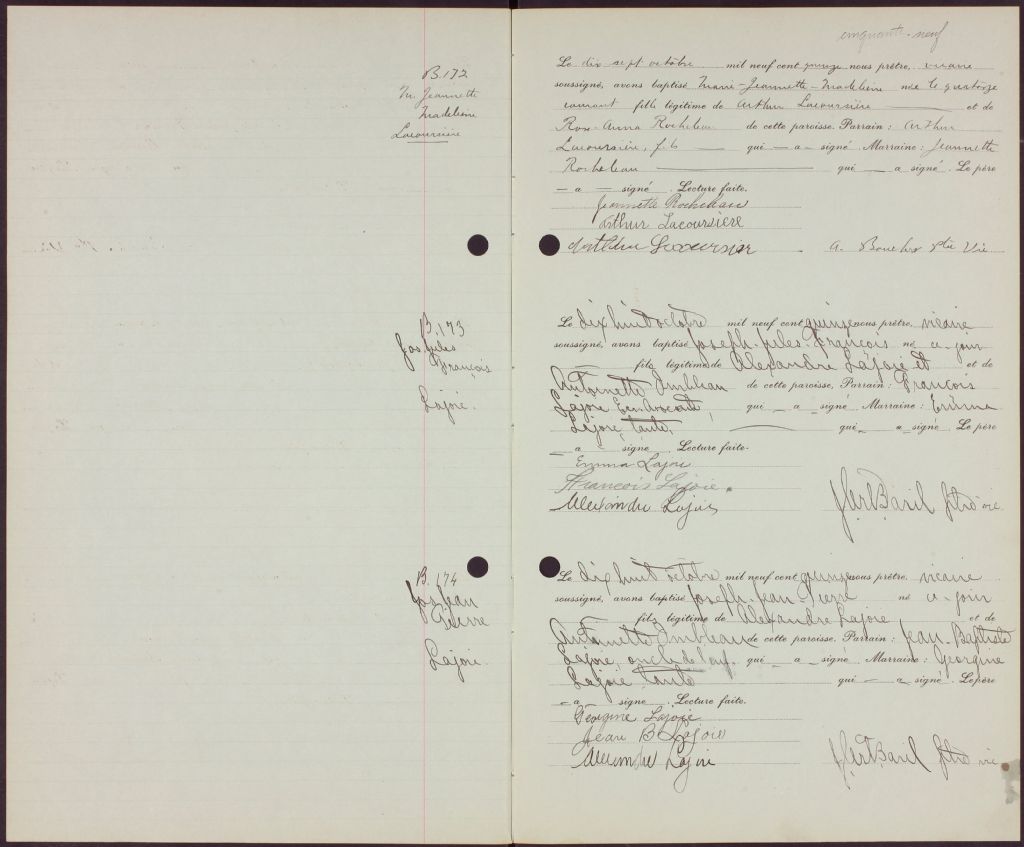 cinquante-neuf
B.172
M. Jeannette
Madeleine
Lacoursière
Le dix sept octobre mil neuf cent quinze nous prêtre, vicaire
soussigné, avons baptisé Marie-Jeannette-Madeleine née le quatorze
courant fille légitime de Arthur Lacoursière et de
Rose-Anna Rocheleau de cette paroisse. Parrain: Arthur
Lacoursière, fils qui — a — signé. Marraine: Jeannette
Rocheleau qui — a signé. Le père
— a — signé. Lecture faite.
Jeannette Rocheleau
Arthur Lacoursière
Lacoursière A. Ptre Vic
B.173
Jos Jules
François
Lajoie.
Le dix huit octobre mil neuf cent quinze nous prêtre, vicaire
soussigné, avons baptisé Joseph-Jules-François né ce jour
fils légitime de Alexandre Lajoie et et de
Antoinette Imbleau de cette paroisse. Parrain: François
Lajoie qui — a — signé. Marraine: Emma
Lajoie, tante, qui — a — signé. Le père
— a signé. Lecture faite.
Emma Lajoie
François Lajoie.
Alexandre Lajoie Baril ptre vic.
B.174
Jos Jean
Pierre
Lajoie.
Le dix huit octobre mil neuf cent quinze nous prêtre, vicaire
soussigné, avons baptisé Joseph-Jean-Pierre né ce jour
fils légitime de Alexandre Lajoie et de
Antoinette Imbleau de cette paroisse. Parrain: Jean-Baptiste
Lajoie, oncle de l'enf. qui — a — signé. Marraine: Georgine
Lajoie tante qui — a signé. Le père
— a — signé. Lecture faite.
Georgine Lajoie
Jean B Lajoie
Alexandre Lajoie Baril ptre vic